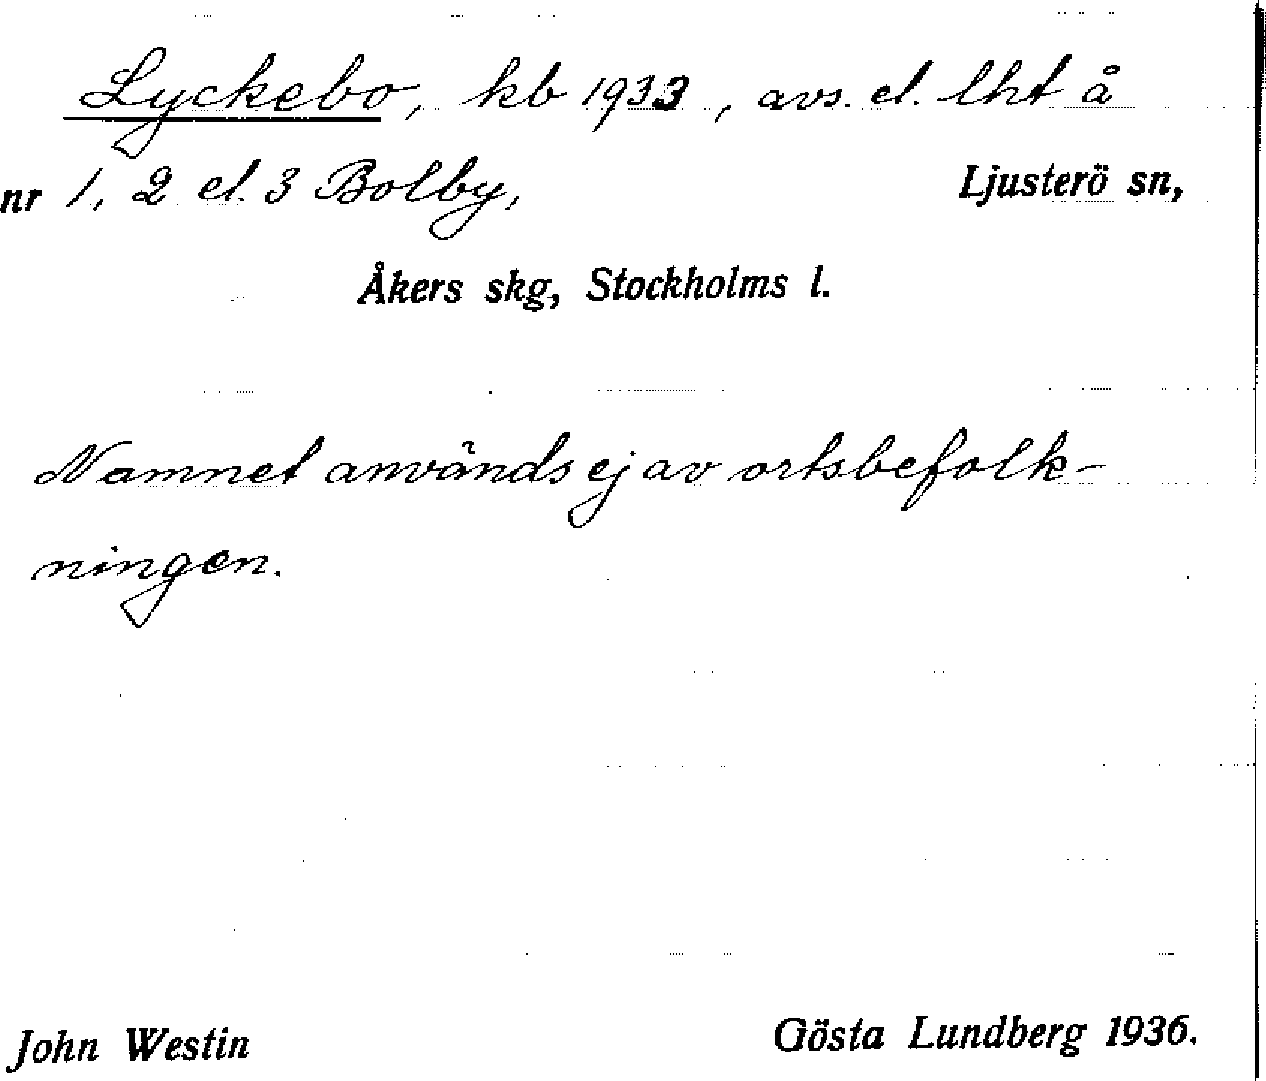 Lyckebo, kb 1933, avs. el. lht å
nr 1, 2 el. 3 Bolby, Ljusterö sn,
Åkers skg, Stockholms l.
Namnet används ej av ortsbefolk-
ningen.
John Westin Gösta Lundberg 1936.